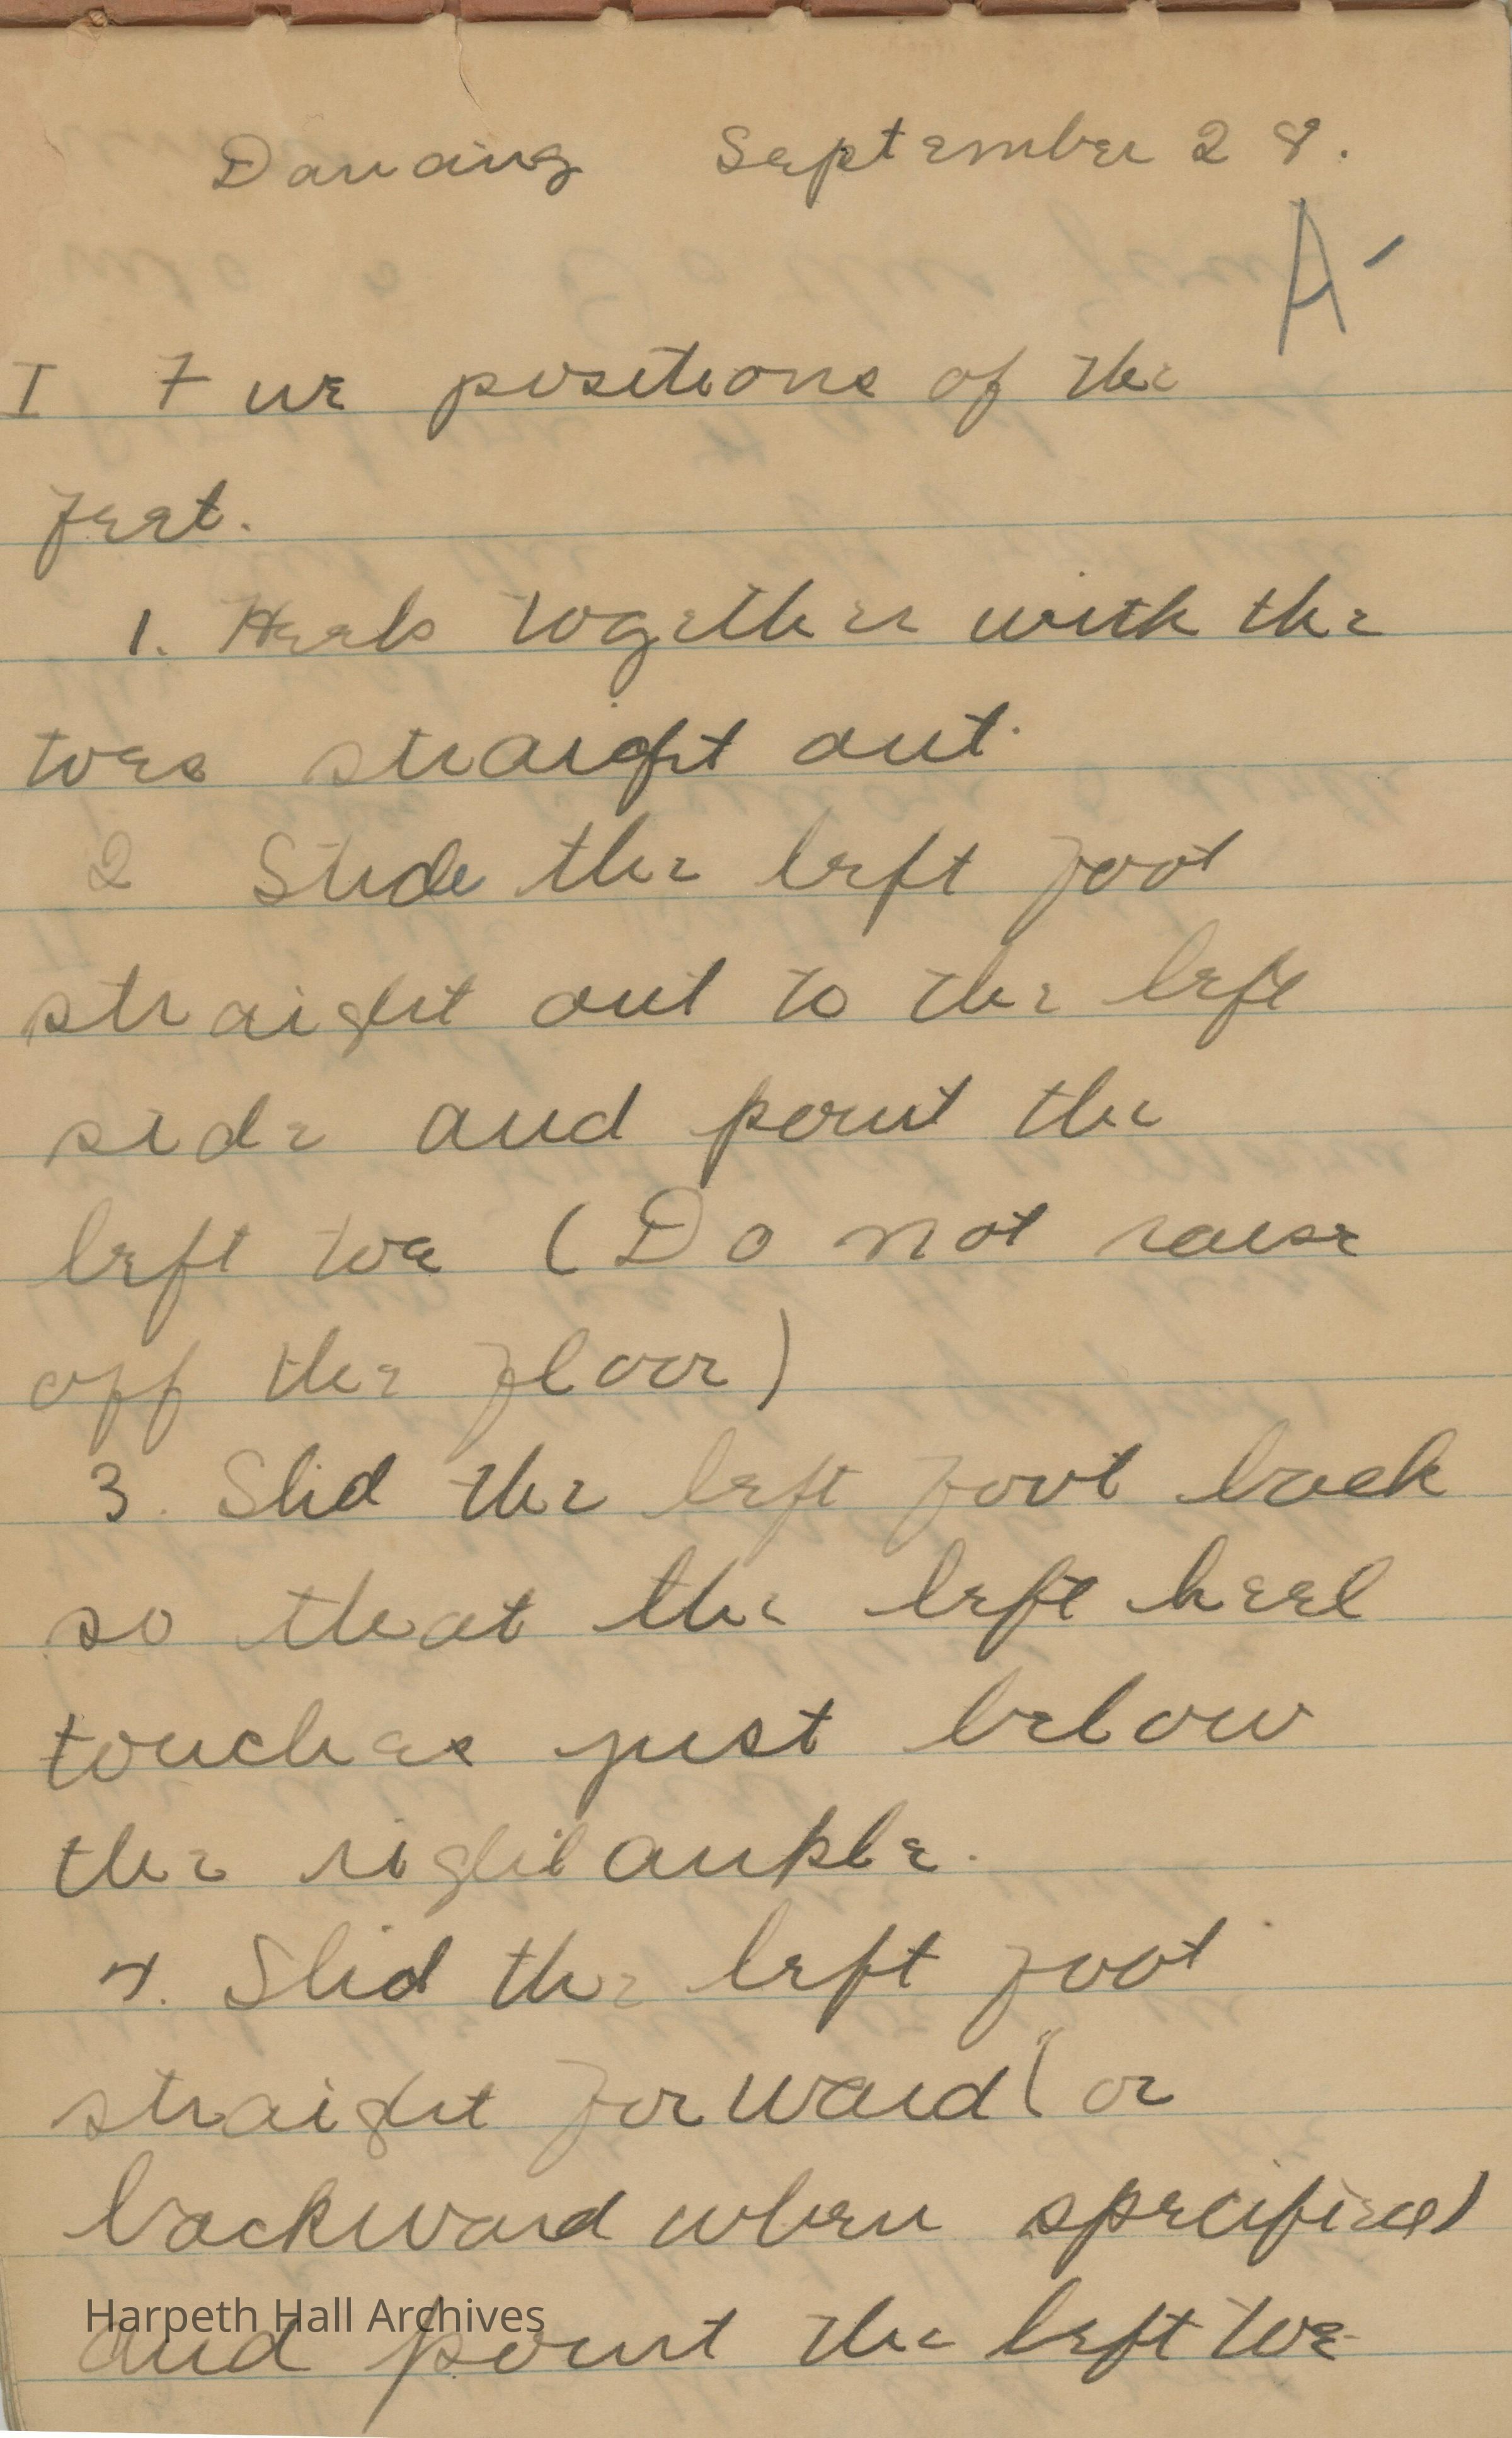 Dancing September 28.
A-
I Five positions of the
feet.
1. Heels together with the
toes straight out.
2 Slide the left foot
straight out to the left
side and point the
left toe (Do not raise
off the floor)
3. Slid the left foot back
so that the left heel
touches just below
the right ankle.
4. Slid the left foot
straight forward (or
backward when specified)
Harpeth Hall Archives
and point the left toe